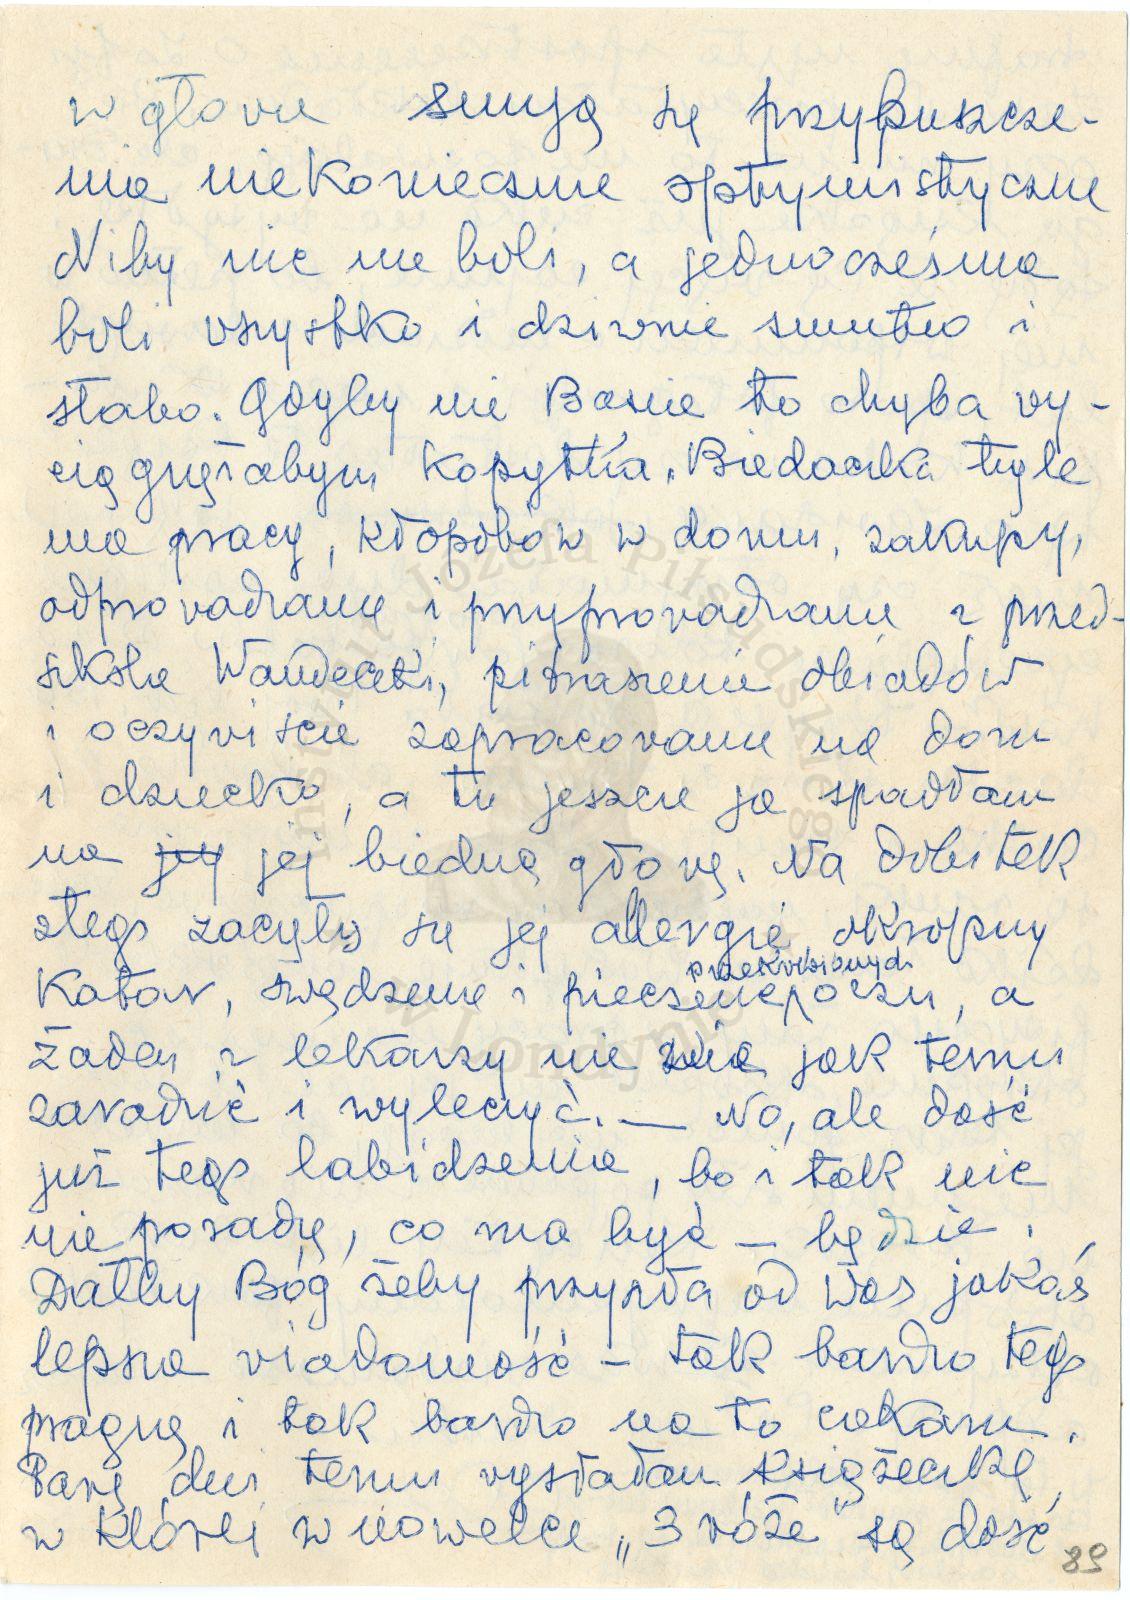 w głowie snują się przypuszcze-
nia niekoniecznie optymistyczne
Niby nic nie boli, a jednocześnie
boli wszystko i dziwnie smutno i
słabo. Gdyby nie Basia to chyba wy-
ciągnęłabym kopytka. Biedaczka tyle
ma pracy, kłopotów w domu, zakupy,
odprowadzanie i przyprowadzanie z przed-
szkola Wandeczki, pitraszenie obiadów
i oczywiście zapracowanie na dom
i dziecko, a tu jeszcze ja spadłam
na jej biedną głowę. Na dobitek
złego zaczęły się jej allergie, okropny
katar, swędzenie i pieczenie przekrwionych oczu, a
żaden z lekarzy nie wie jak temu
zaradzić i wyleczyć. — No, ale dość
już tego labidzenia, bo i tak nic
nie poradzę, co ma być — będzie.
Dałby Bóg żeby przyszła od Was jakaś
lepsza wiadomość – tak bardzo tego
pragnę i tak bardzo na to czekam.
Parę dni temu wysłałam książeczkę,
w której w nowelce „3 róże" są dość
89
Instytut Józefa Piłsudskiego
w Londynie